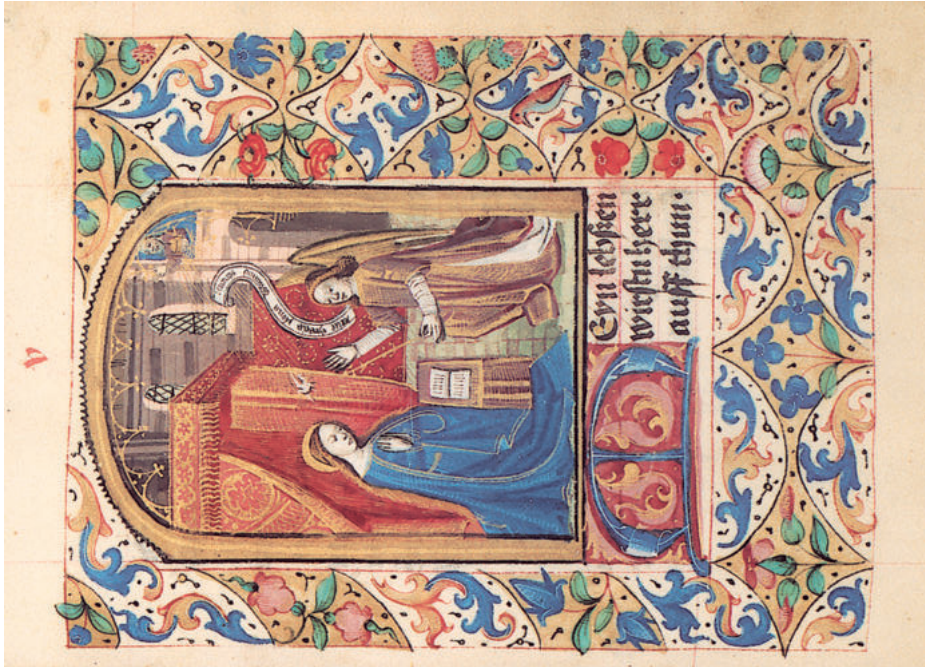 Aue gracia plena dominus tecum
MEyn lebßen
wirstu herr
auff thun·